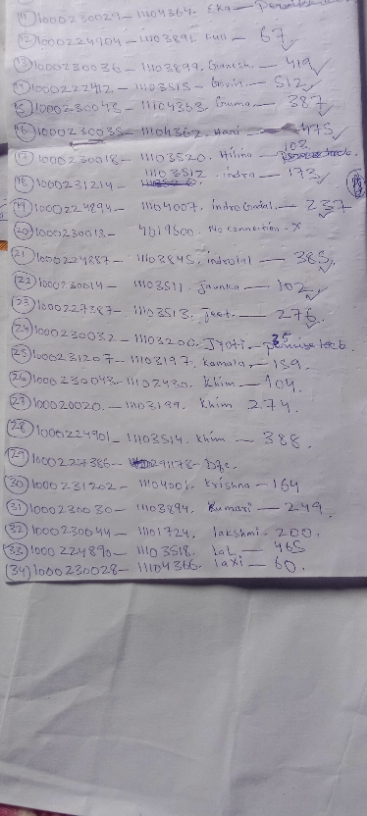 (11) 1000230029 - 11104364. Eka -
(12) 1000224904 - 11103891. - 67 ✓
(13) 1000230036 - 11103899. Ganesh. - 419 ✓
(14) 1000222412 - 11103515 - Govin - 512 ✓
(15) 1000230043 - 11104353. Guma - 387 ✓
(16) 1000230035 - 11104362. Hari - 475 ✓
(17) 1000230018 - 11103520. - 102
(18) 1000231214 11103512 - indra - 173 ✓
(19) 1000224894 - 11104007. indra - 237
(20) 1000230013 - 4019600. No connection - x
(21) 1000224887 - 11103845. indralal - 385 ✓
(22) 1000230014 - 1103511. - 102 ✓
(23) 1000227387 - 1103513. Jeet. - 276 ✓
(24) 1000230032 - 11103200. Jyoti - 35
(25) 1000231207 - 11103197. Kamala - 159
(26) 1000230043 - 11102430. Khim - 104
(27) 100020020. - 1103199. Khim 274.
(28) 1000224901 - 11103514. Khim - 388.
(29) 1000227386 - 0291178 -
(30) 1000231202 - 1104001. Krishna - 164
(31) 1000230030 - 1103894. Kumari - 249.
(32) 1000230044 - 1101724. lakshmi - 200.
(33) 1000224890 - 1103518. lal - 465
(34) 1000230028 - 11104366. laxi - 60.